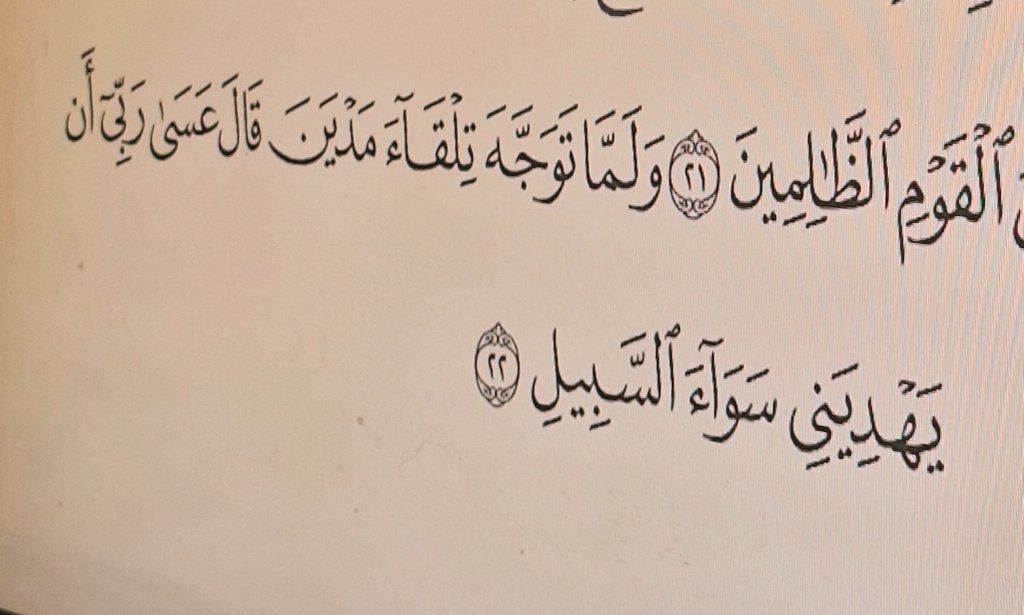 ٱلْقَوْمِ ٱلظَّٰلِمِينَ ٢١ وَلَمَّا تَوَجَّهَ تِلْقَآءَ مَدْيَنَ قَالَ عَسَىٰ رَبِّىٓ أَن
يَهْدِيَنِى سَوَآءَ ٱلسَّبِيلِ ٢٢